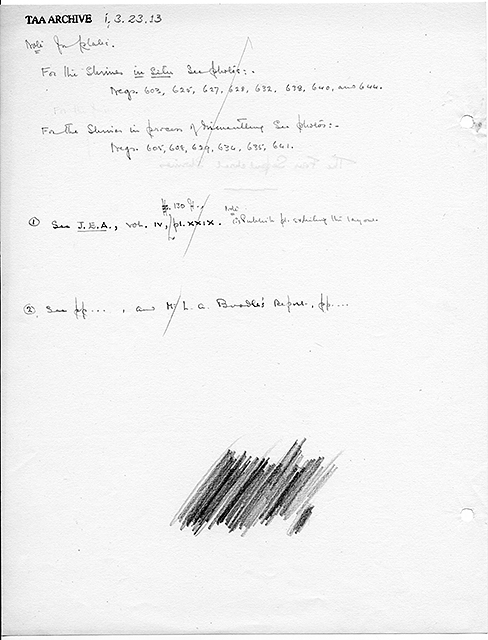 TAA ARCHIVE i, 3. 23. 13
Note for plates.
For the Shrines in situ see photos:-
Negs. 603, 625, 627, 628, 632, 638, 640, and 644.
For the Shrines in process of dismantling see photos:-
Negs. 605, 608, 629, 634, 635, 641.
The Four Sepulchral Shrines
pp. 130 ff., Note
① See J.E.A., vol. IV, pl. XXIX. Publish pl. exhibiting the layers.
② See pp..... , and Mr L. A. Boodle's Report, pp....